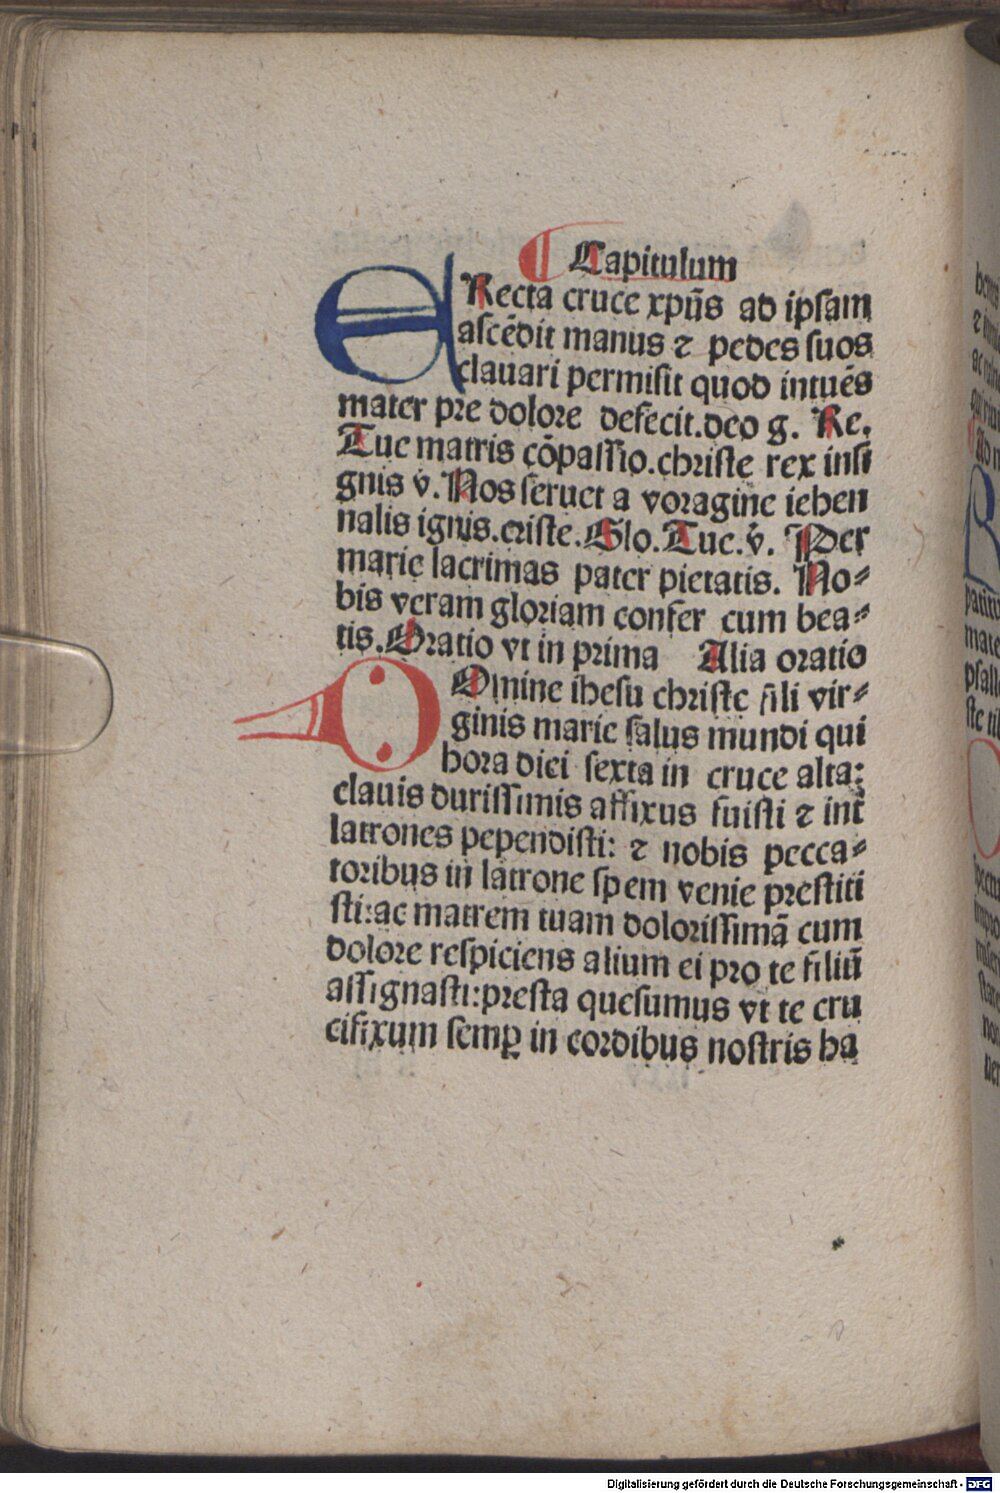 ¶ Capitulum
ERecta cruce xpūs ad ipsam
ascēdit manus ⁊ pedes suos
clauari permisit quod intuēs
mater pre dolore defecit.deo g. Re.
Tue matris cōpassio.christe rex insi
gnis v̾. Nos seruet a voragine iehen
nalis ignis.criste. Glo. Tue. v̾. Per
marie lacrimas pater pietatis. No⸗
bis veram gloriam confer cum bea⸗
tis. Oratio vt in prima Alia oratio
DOmine ihesu christe fili vir⸗
ginis marie salus mundi qui
hora diei sexta in cruce alta:
clauis durissimis affixus fuisti ⁊ int̄
latrones pependisti: ⁊ nobis pecca⸗
toribus in latrone spem venie prestiti
sti:ac matrem tuam dolorissimā cum
dolore respiciens alium ei pro te filiū
assignasti:presta quesumus vt te cru
cifixum semꝑ in cordibus nostris ha
Digitalisierung gefördert durch die Deutsche Forschungsgemeinschaft - DFG